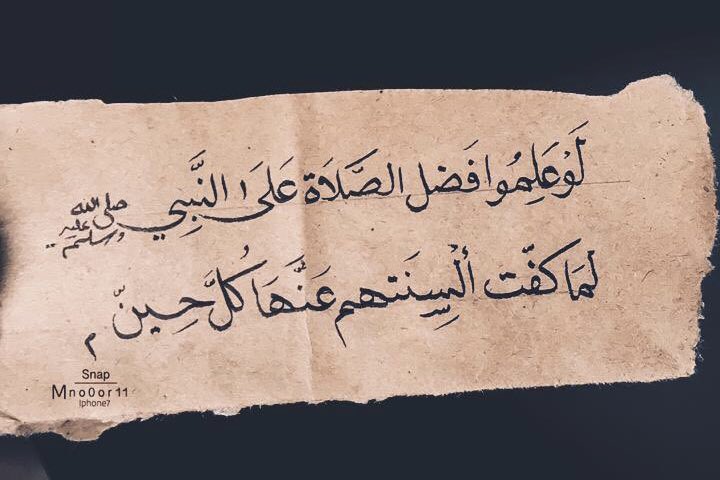 لَوْ عَلِمُوا فَضل الصَّلَاة عَلىَ النَّبِي صلى الله عليه وسلم
لمَا كفّت ألسِنَتهم عَنَّهَا كُلَّ حِينّ
م
Snap
Mno0or11
Iphone7